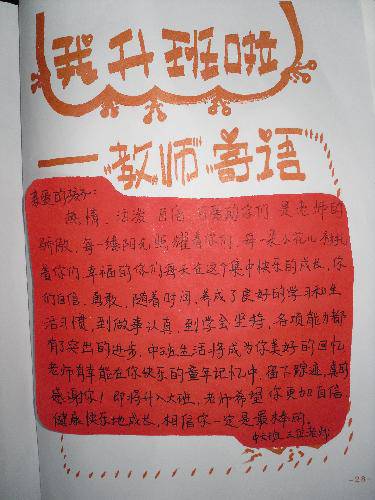 我升班啦
一教师寄语
亲爱的孩子:
热情、活泼、自信、可爱的你们是老师的
骄傲,每一缕阳光照耀着你们,每一朵小花儿
着你们,幸福的你们每天在这个集中快乐的成长,你
们自信、勇敢,随着时间,养成了良好的学习和生
活习惯,到做事认真,到学会坚持,各项能力都
有了突出的进步,中班生活将成为你美好的回忆
老师有幸能在你快乐的童年记忆中,留下踪迹,真的
感谢你!即将升入大班,老师希望你更加自信
健康快乐地成长,相信你一定是最棒的。
中大班 三位老师
-28-